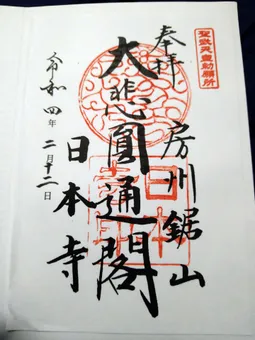 聖武天皇勅願所
奉拝
房州鋸山
大悲圓通閣
日本寺
令和四年二月十二日